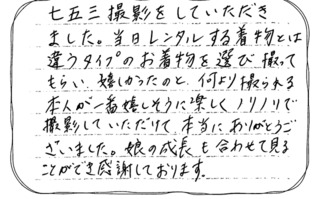 七五三撮影をしていただき
ました。当日レンタルする着物とは
違うタイプのお着物を選び撮って
もらい、嬉しかったのと、何より撮られる
本人が一番嬉しそうに楽しくノリノリで
撮影していただけて、本当にありがとうご
ざいました。娘の成長も合わせて見る
ことができ感謝しております。